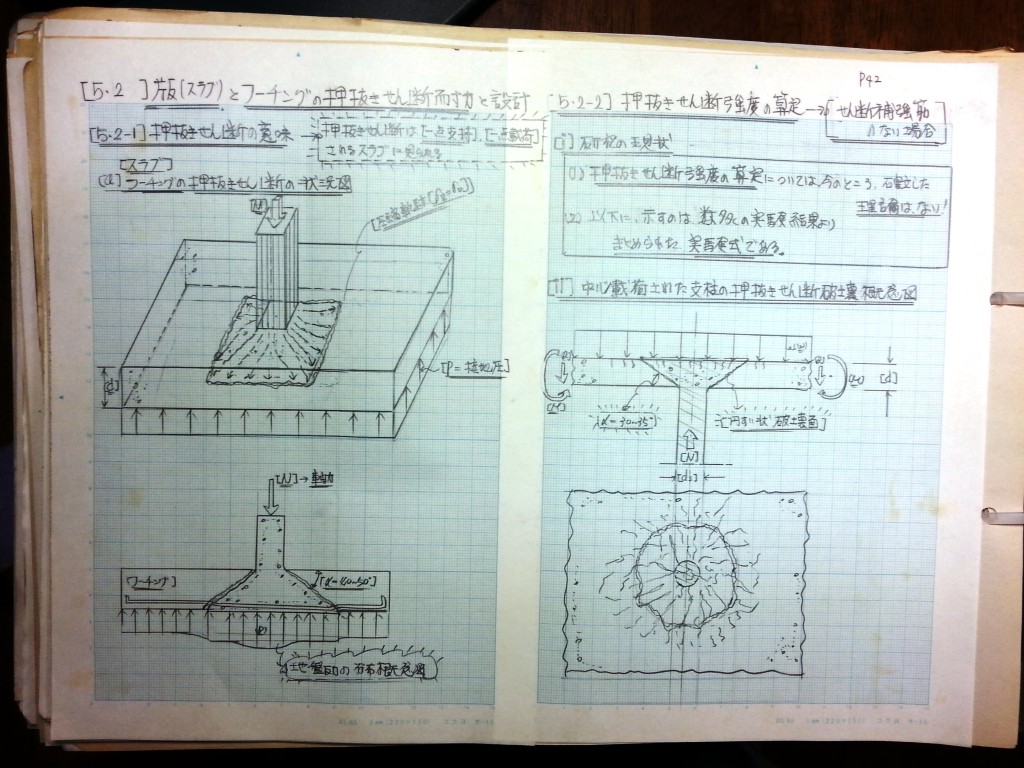 [5・2 ] 版(スラブ)とフーチングの押抜きせん断耐力と設計
[5.2-1] 押抜きせん断の意味 → 押抜きせん断は[一点支持], [一点載荷]
されるスラブに見られる
[スラブ]
フーチングの押抜きせん断の状況図
[N]
[d]
[P=接地圧]
[N]→軸力
[フーチング]
[α=40~50°]
地盤反力の分布概念図
P42
[5.2-2] 押抜きせん断強度の算定 → [せん断補強筋
がない場合]
[i] 研究の現状
(1) 押抜きせん断強度の算定については、今のところ、確立した
理論は、ない!
(2) 以下に、示すのは、数多くの実験結果より
まとめられた実験式である。
[ii] 中心載荷された支柱の押抜きせん断破壊概念図
[d]
[α=30~35°]
[円すい状破壊面]
[N]